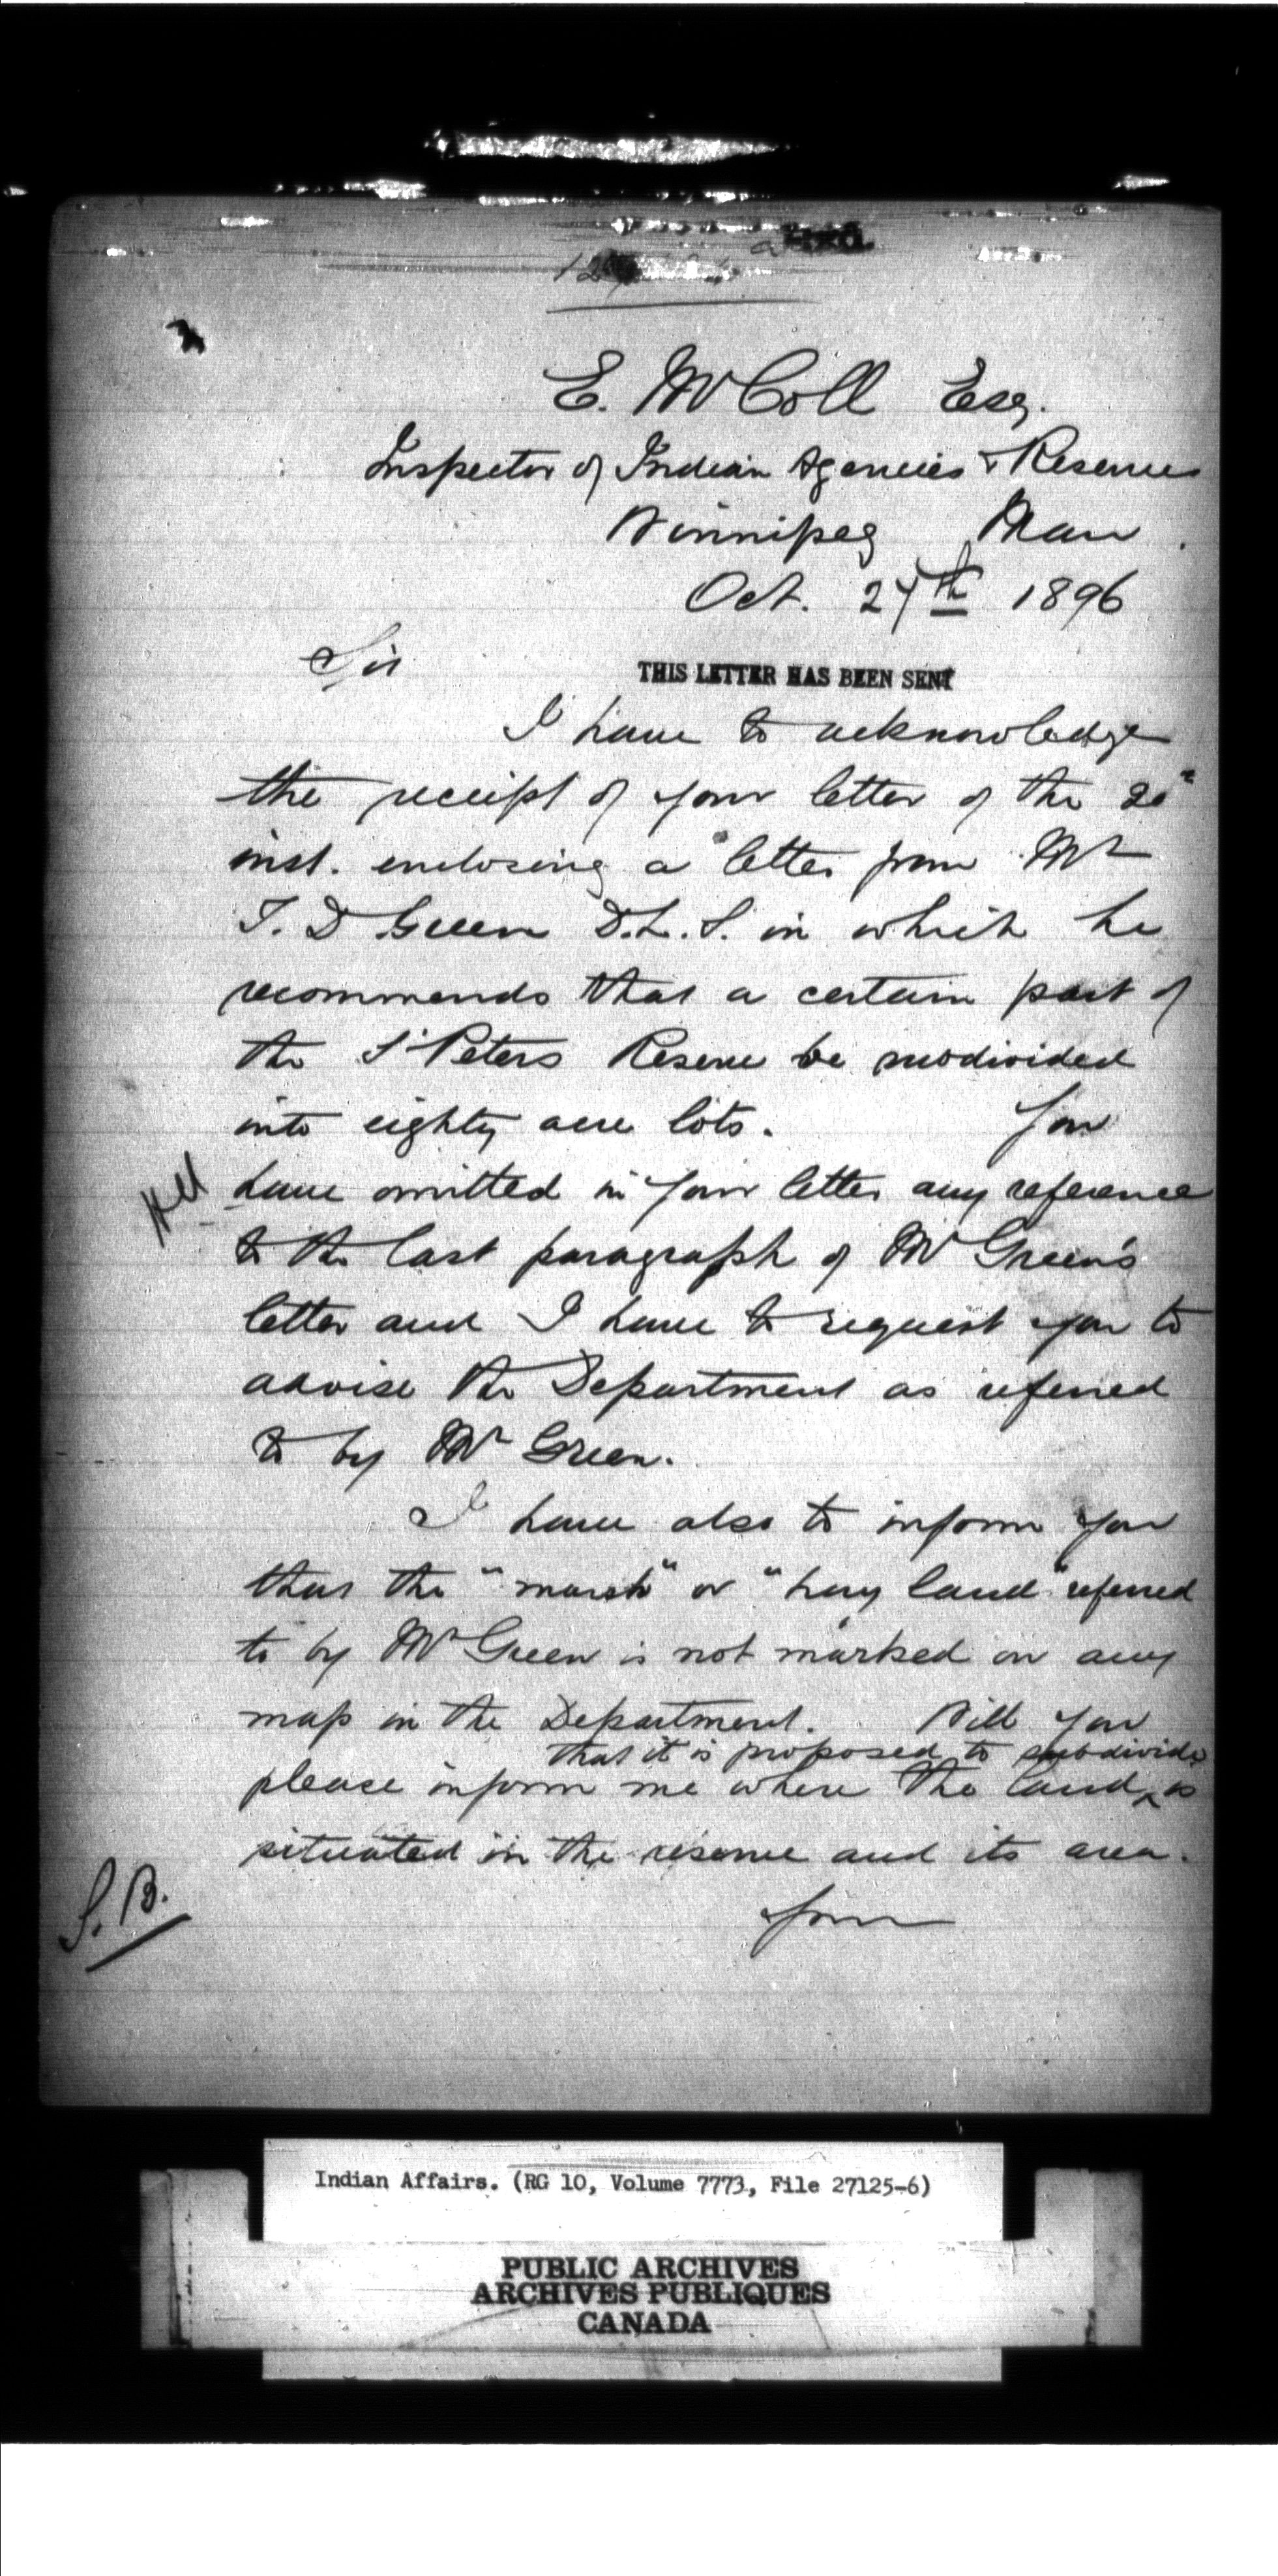 E. McColl Esq.
Inspector of Indian Agencies & Reserves
Winnipeg Man.
Oct. 27th 1896
Sir
THIS LETTER HAS BEEN SENT
I have to acknowledge
the receipt of your letter of the 20"
inst. enclosing a letter from Mr
T. D Green D.L.S. in which he
recommends that a certain part of
the St Peters Reserve be subdivided
into eighty acre lots. You
have omitted in your letter any reference
to the last paragraph of Mr Green's
letter and I have to request you to
advise the Department as referred
to by Mr Green.
I have also to inform you
that the "marsh" or "hay land" referred
to by Mr Green is not marked on any
map in the Department. Will you
that it is proposed to subdivide
please inform me where the land ^ is
situated in the reserve and its area.
S.B.
Your
Indian Affairs. (RG 10, Volume 7773, File 27125-6)
PUBLIC ARCHIVES
ARCHIVES PUBLIQUES
CANADA